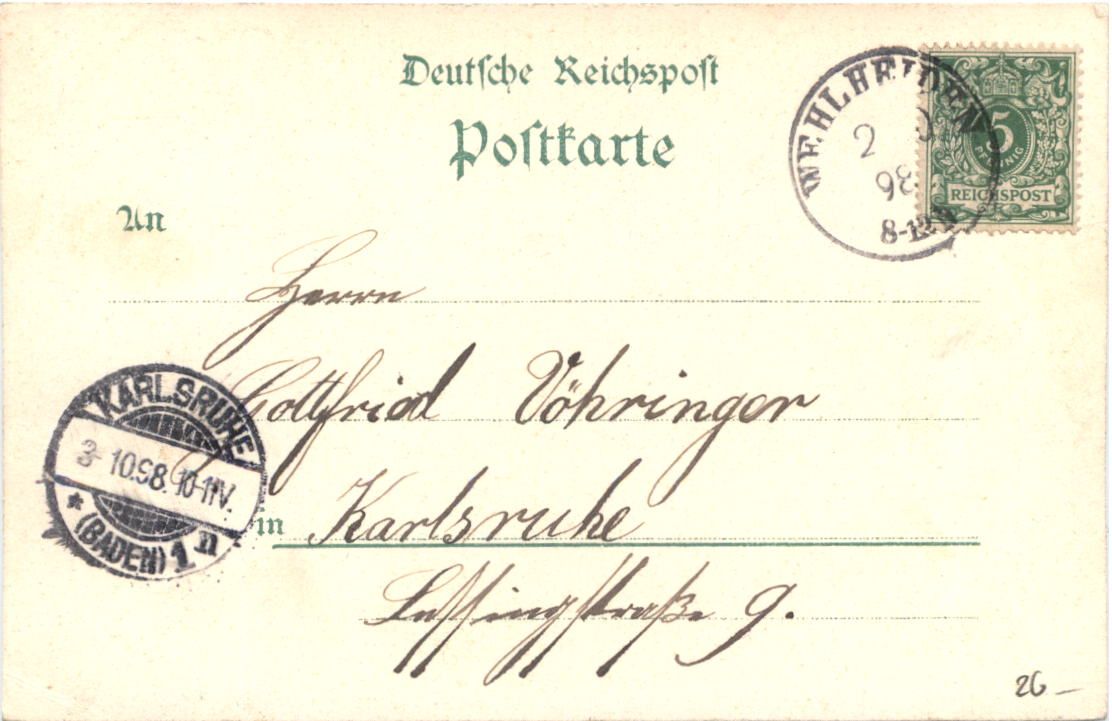 Deutsche Reichspost
Postkarte
WEHLHEIDEN
2
98
8-12N
5
PFENNIG
REICHSPOST
An
Herrn
Gottfried Vöhringer
in Karlsruhe
Lessingstraße 9.
KARLSRUHE
3 10.98. 10-11V.
* (BADEN) 1 n
26 –